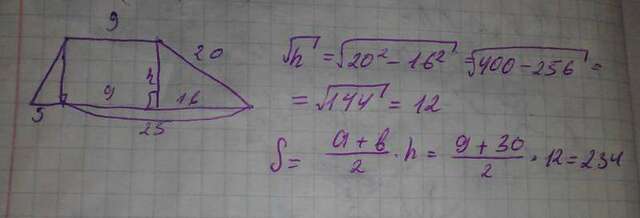 9
20
h
5
9
16
25
√h = √20² - 16² = √400 - 256 =
= √144 = 12
S = (a + b)/2 · h = (9 + 30)/2 · 12 = 234